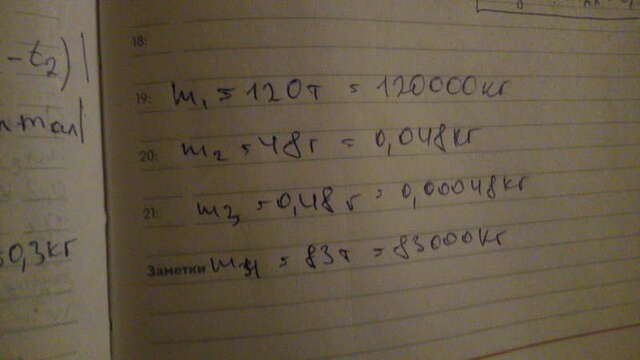 - t₂)|
18:
19: m₁ = 120т = 120000кг
20: m₂ = 48г = 0,048кг
21: m₃ = 0,48г = 0,00048кг
0,3кг
Заметки m₄ = 83т = 83000кг